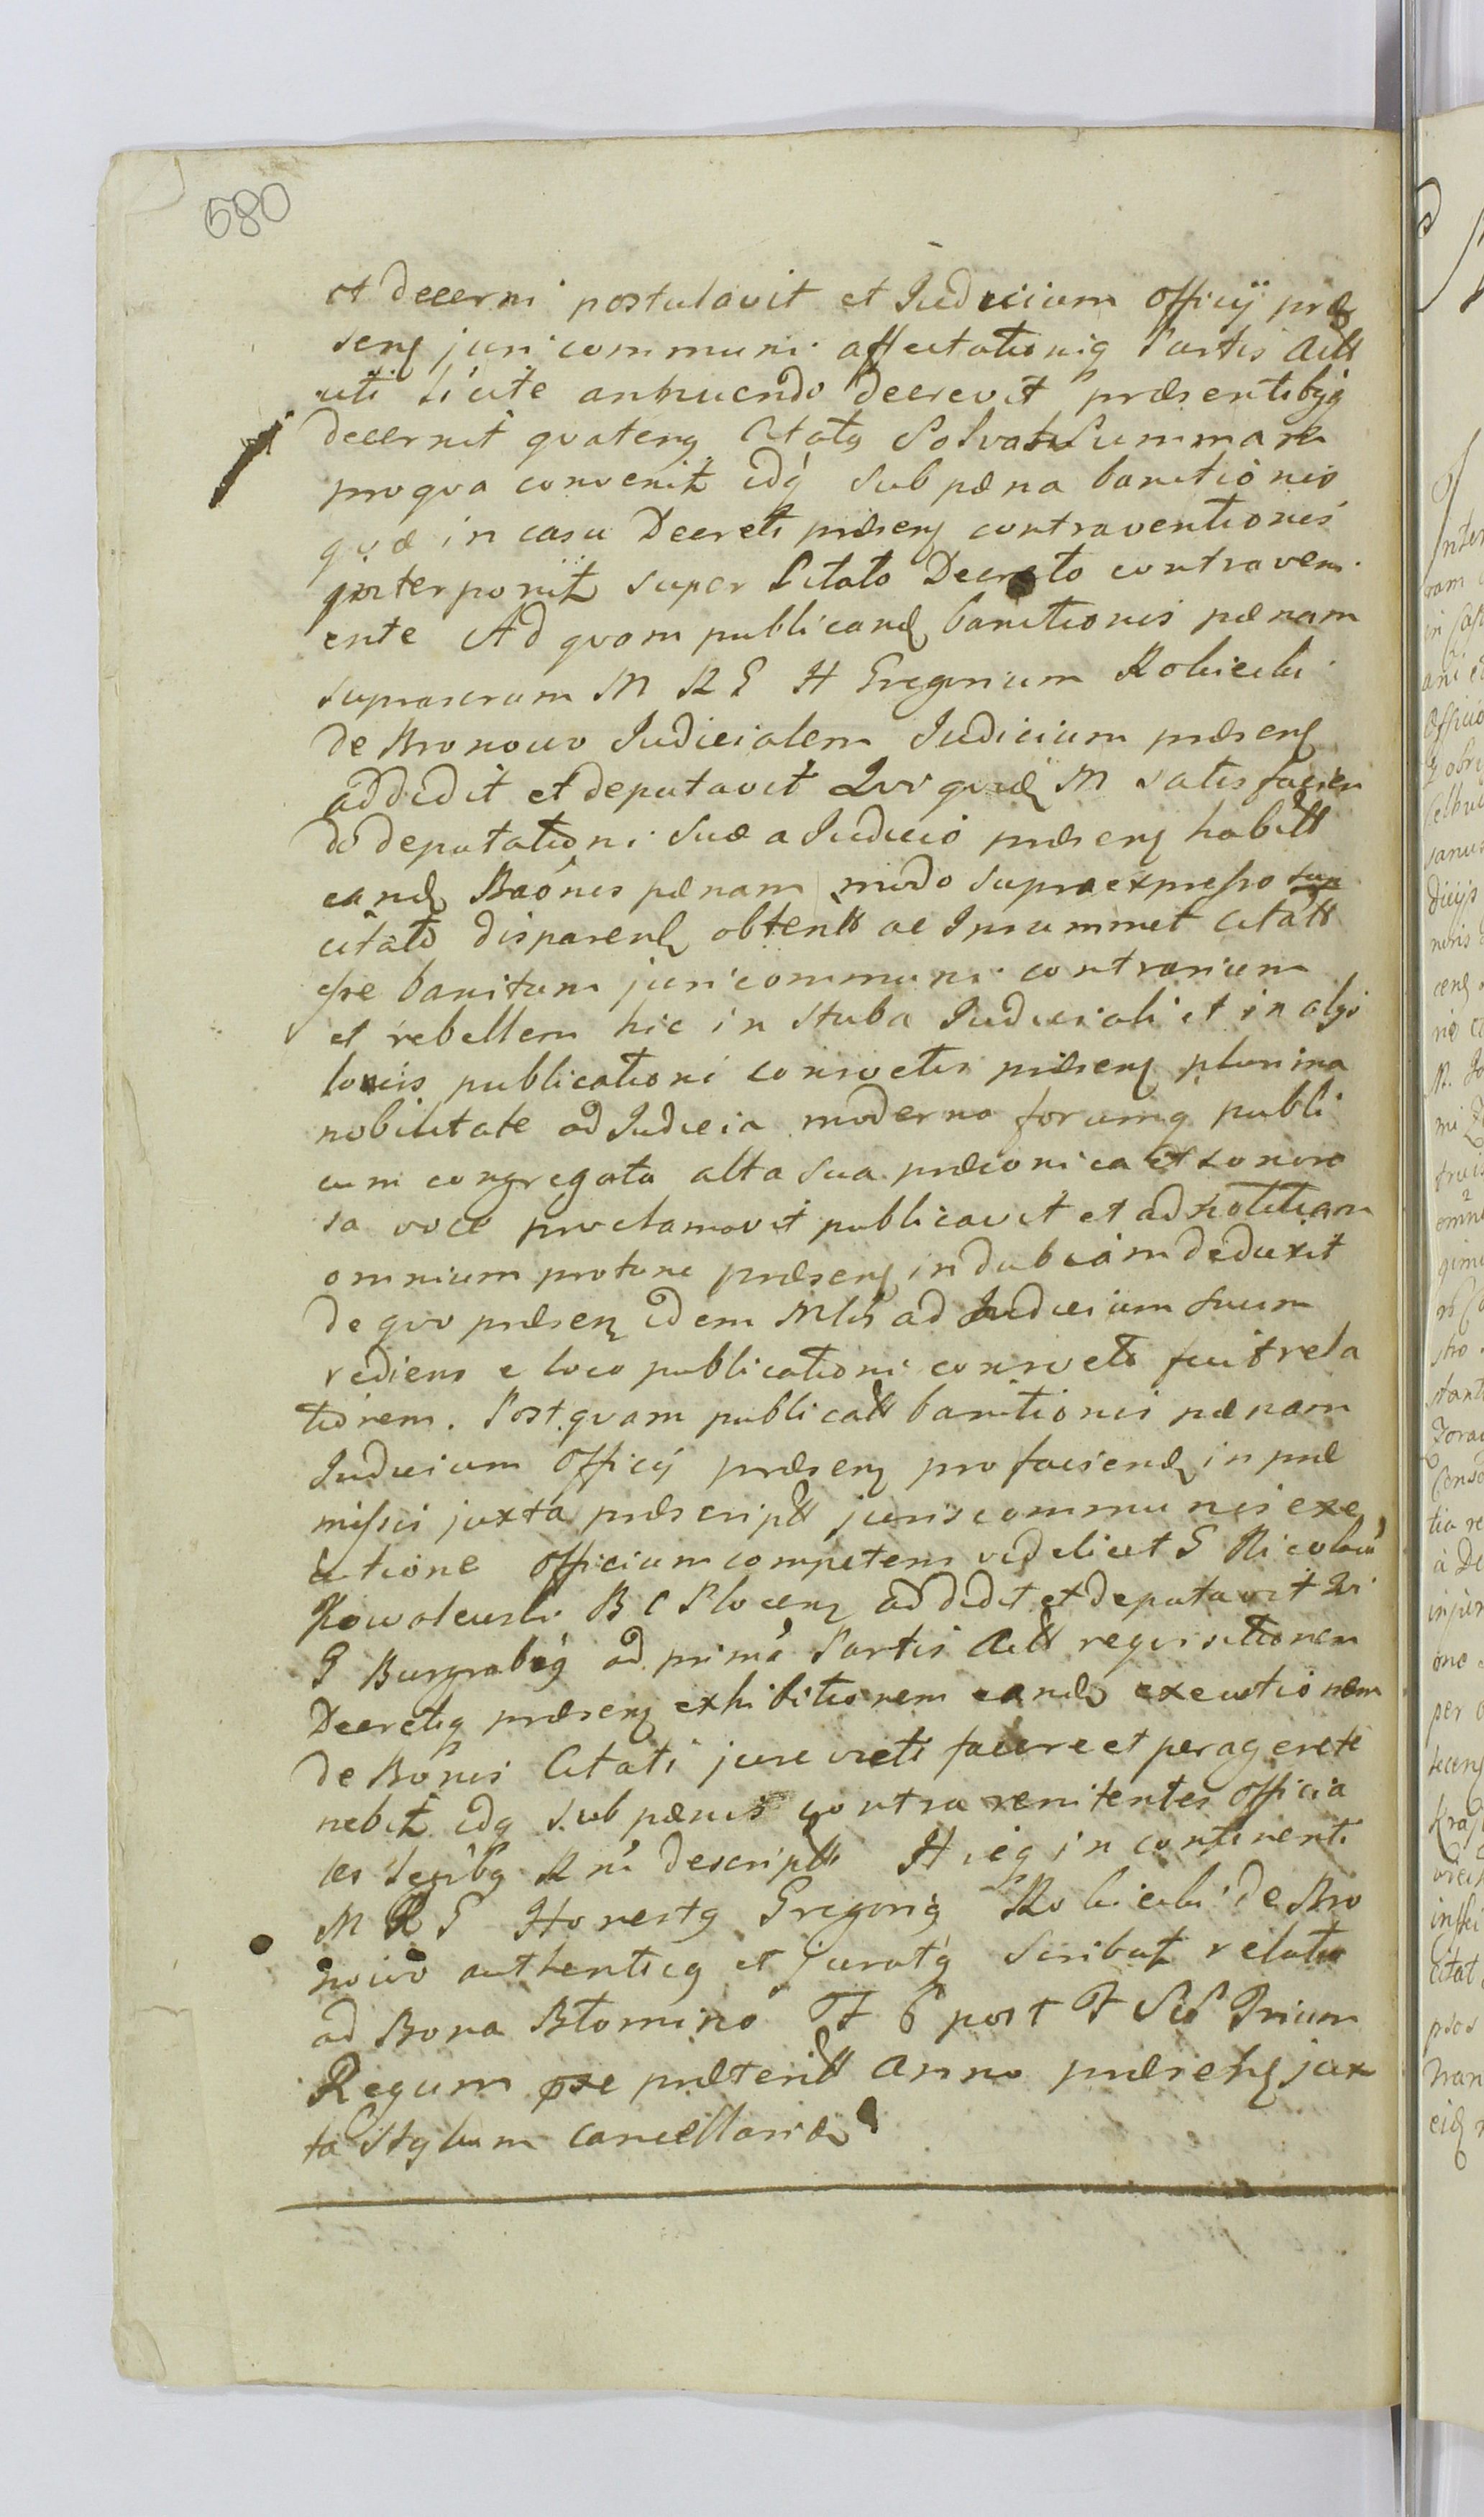 680
et decerni postulavit et Iudicium Officij præ
senʒ juri communi affectationiq Partis Actt
uti licite annuendo decrevit præsentibɋq
decernit quatenɋ Citatɋ Solvat Summam
pro qva convenitr idq́ sub pæna banitionis
qvæ in casu Decreti præsenʒ contraventionis
interponitr super Citato Decreto contraveni
ente Ad qvam publicandʒ banitionis pænam
suprascram M R G H Gregorium Robiecki
de Bronowo Iudicialem Iudicium præsenʒ
addidit et deputavit Qvi qvidʒ M satisfacien
do deputationi suæ a Iudicio præsenʒ habitt
eandʒ Baonis pænam modo supra expresso sup
citato disparenʒ obtentt ac Insummet citatt
esse banitum juri communi contrarium
et rebellem hic in stuba Iudiciali et in aliis
locis publicationi consvetis præsenʒ plurima
nobilitate ad Iudicia moderna forumq publi
cum congregata alta sua præconica et sonoro
sa voce proclamavit publicavit et ad notitiam
omnium protunc præsenʒ indubiam deduxit
De qvo præsenʒ idem Mlis ad Iudicium suum
rediens e loco publicationi consveto fecit rela
tionem. Postqvam publicatt banitionis pænam
Iudicium Officij præsenʒ pro faciendʒ in præ
missis juxta præscriptt juris communis exe
cutione Officium competens videlicet G Nicolaū
Kowalewski B C Plocenʒ addidit et deputavit Qvi
G Burgrabiɋ ad primā Partis Actt requisitionem
Decretiq præsenʒ exhibitionem eandʒ executionem
de Bonis Citati jure victi facere et peragere te
nebitr idq sub pænis contra renitentes Officia
les legibɋ Rni descriptis Hicq in continenti
M R G Honestɋ Gregoriɋ Robiecki de Bro
nowo authenticɋ et juratɋ scribatr relatio
ad Bona Btomino F 6 post F SS Trium
Regum pxe præteritt anno præsenʒ jux
ta stylum cancellariæ